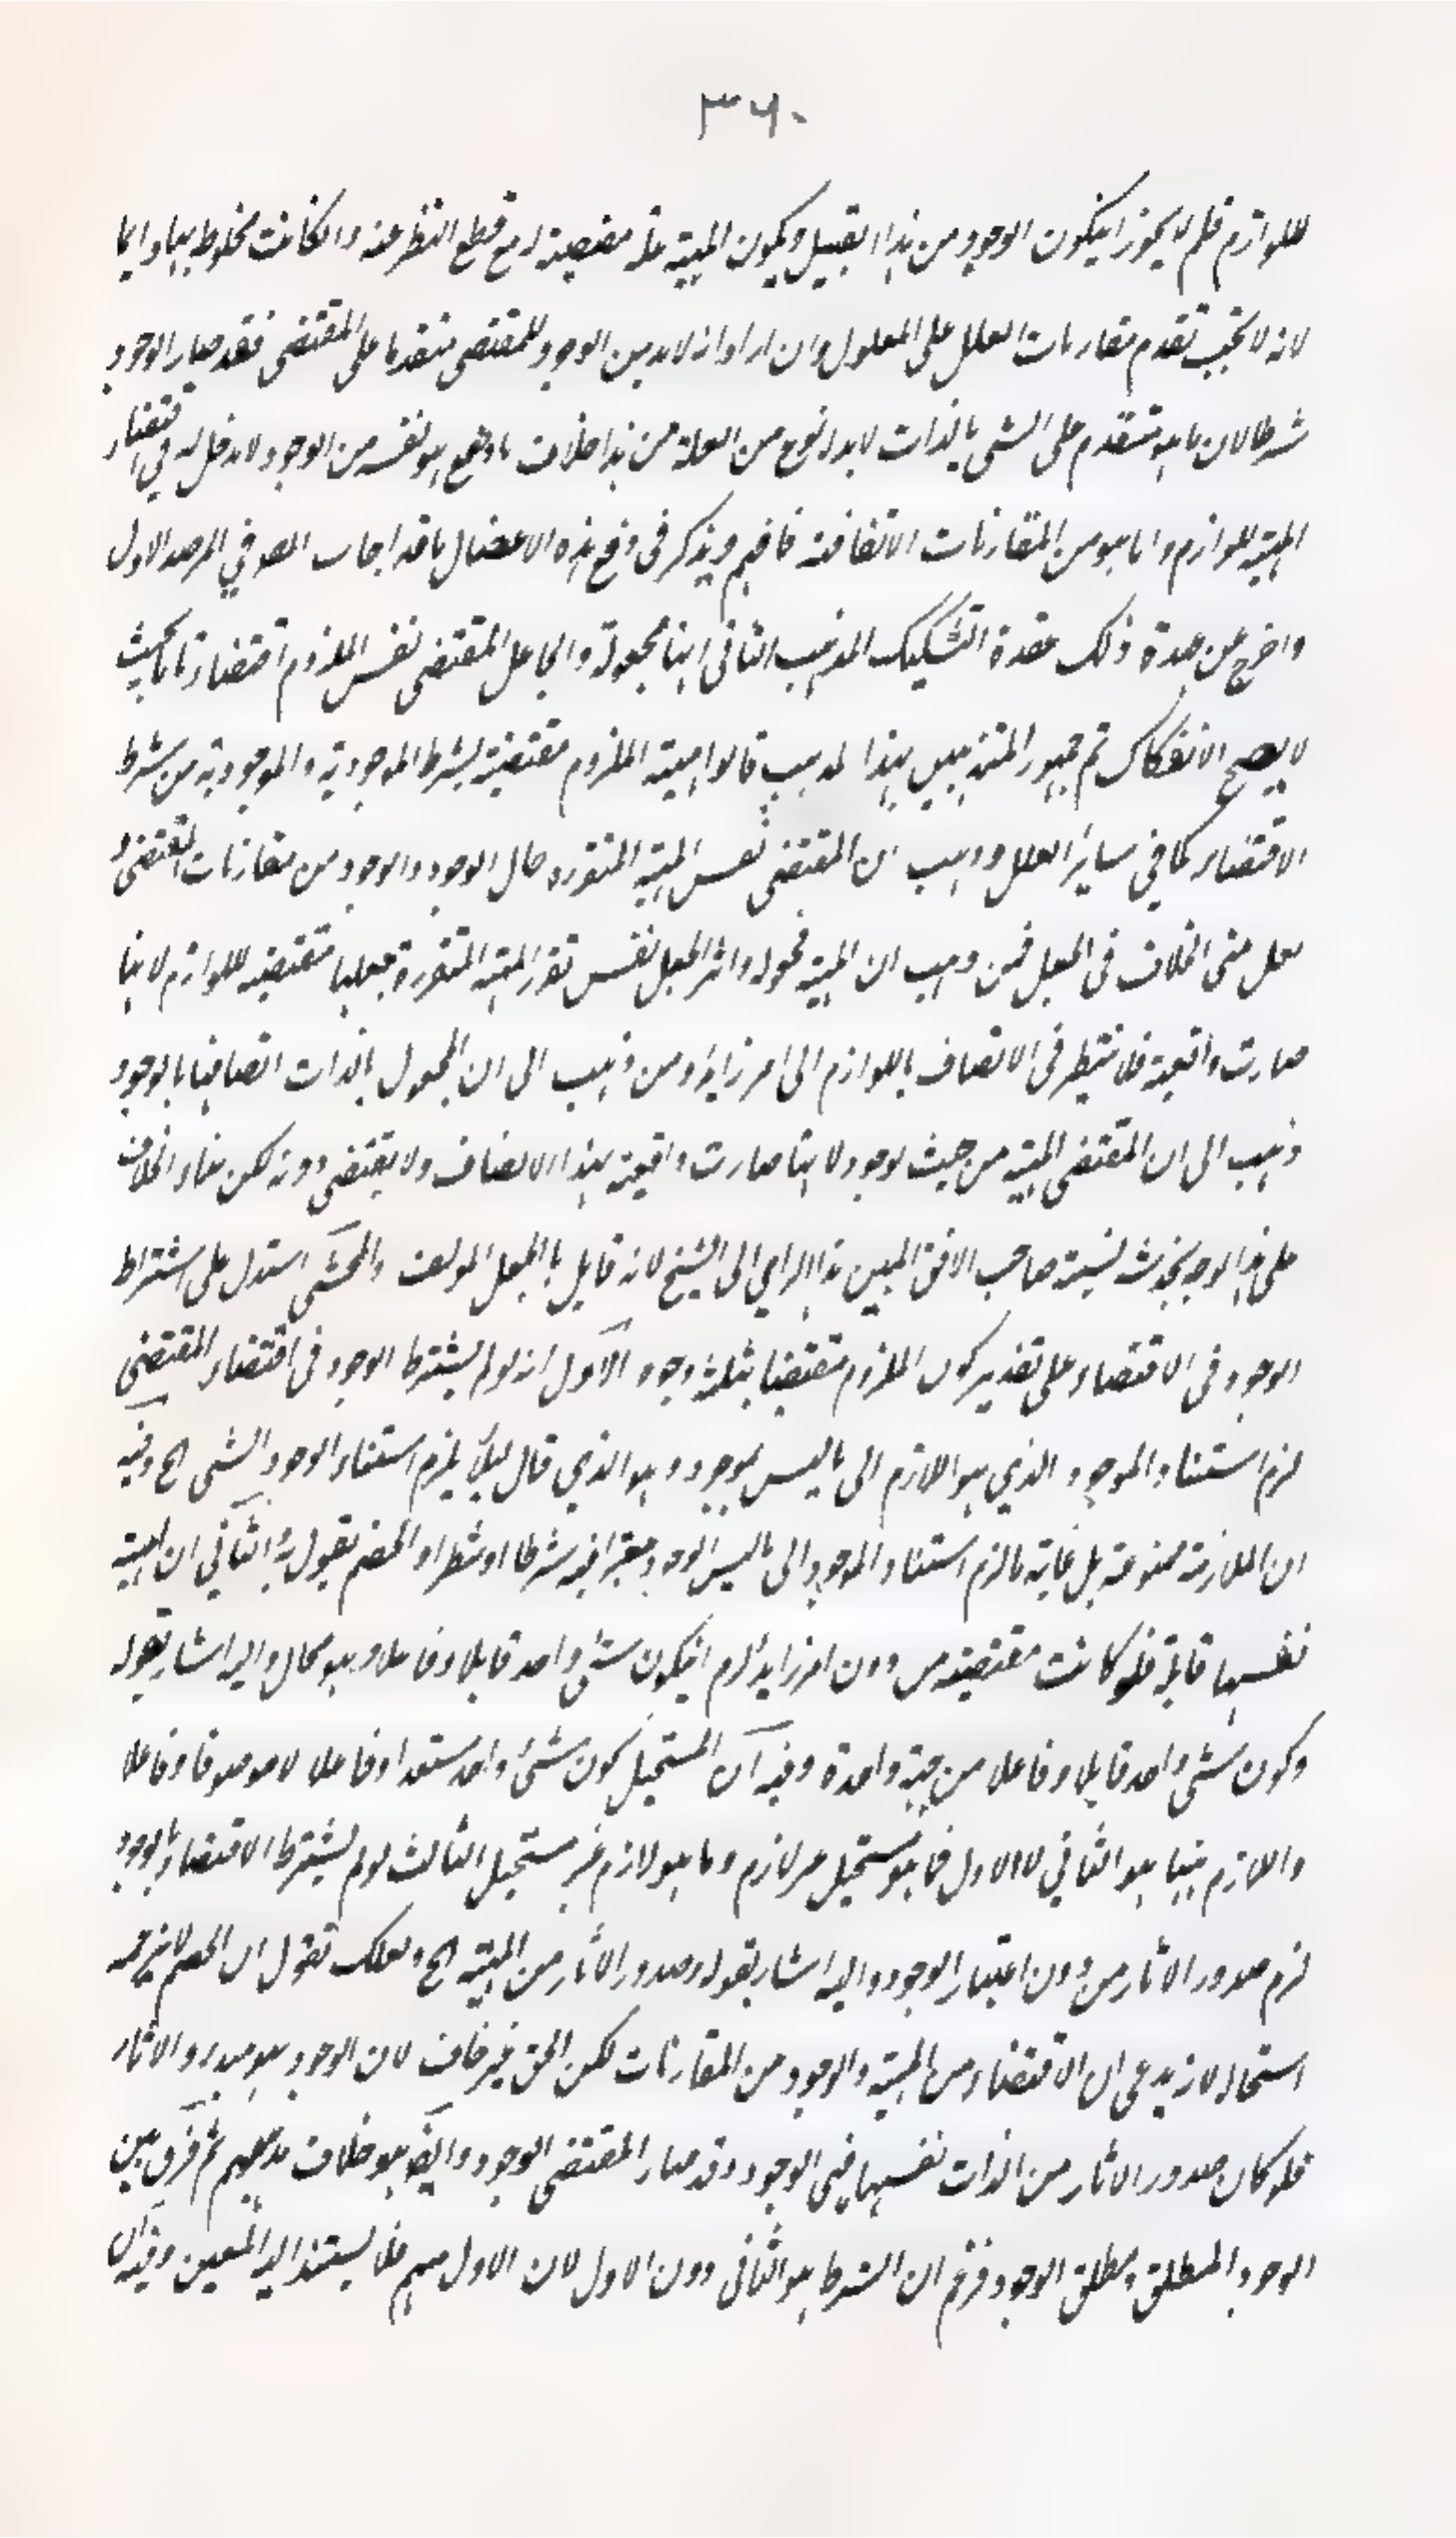 ٣٦٠
للوازم فلم لا يجوز ان يكون الوجود من هذا القبيل ويكون المهية علة مقتضية له مع قطع النظر عنه وان كانت مخلوطة بها واما
لانه لا يجب تقدم مقارنات العلل على المعلول وان اراد انه لا بد من الوجود للمقتضى متقدما على المقتضى فقد صار الوجود
شرطا لان ما به متقدم على الشى بالذات لا بد له نوع من العلة من هذا خلاف ما وضع هو نفسه من الوجود لا دخل له في اقتضاء
المهية للوازم وانما هو من المقارنات الاتفاقية فافهم ويذكر فى دفع هذه الاعضال ما قد اجاب المص في المرصد الاول
واخرج عن عهدة ذلك عقدة التشكيك المذهب الثانى انها مجعولة والجاعل المقتضى نفس الملزوم اقتضاء تاما بحيث
لا يصح الانفكاك ثم جمهور المتذهبين بهذا المذهب قالوا مهية الملزوم مقتضية بشرط الموجودية والموجودية من شرط
الاقتضاء كما في سائر العلل وذهب ان المقتضى نفس المهية المتقررة حال الوجود والوجود من مقارنات المقتضى و
لعل مبنى الخلاف فى الجعل فمن ذهب ان المهية مجعولة واثر الجعل نفس تقرر المهية المتقررة جعلها مقتضية للوازم لانها
صارت واقعية فلا تنتظر فى الاتصاف باللوازم الى امر زايد ومن ذهب الى ان المجعول بالذات اتصافها بالوجود
ذهب الى ان المقتضى المهية من حيث الوجود لانها صارت واقعية بهذا الاتصاف ولا يقتضى دونه لكن بناء الخلاف
على هذا الوجه يخدش نسبة صاحب الافق المبين هذا الراى الى الشيخ لانه قايل بالجعل المولف والمحشى استدل على اشتراط
الوجود فى الاقتضاء على تقدير كون الملزوم مقتضيا بثلثة وجوه الاول انه لو لم يشترط الوجود فى اقتضاء المقتضى
لزم استناد الموجود الذي هو اللازم الى ما ليس بموجود وهو الذي قال لئلا يلزم استناد الوجود الشى الخ وفيه
ان الملازمة ممنوعة بل غاية ما لزم استناد الموجود الى ما ليس الوجود معتبرا فيه شرطا او شطرا والخصم يقول به الثاني ان المهية
نفسها قابلة فلو كانت مقتضية من دون امر زايد لزم ان يكون شئ واحد قابلا وفاعلا وهو محال واليه اشار بقوله
وكون شئ واحد قابلا وفاعلا من جهة واحدة وفيه ان المستحيل كون شئ واحد مستعدا وفاعلا لا موصوفا وفاعلا
واللازم ههنا هو الثاني لا الاول فما هو مستحيل غير لازم وما هو لازم غير مستحيل الثالث لو لم يشترط الاقتضاء بالوجود
لزم صدور الاثار من دون اعتبار الوجود واليه اشار بقوله وصدور الاثار من المهية الخ ولعلك تقول ان الخصم لا يزعمه
استحالة لانه يدعى ان الاقتضاء من المهية والوجود من المقارنات لكن الحق غير خاف لان الوجود هو مبدء الاثار
فلو كان صدور الاثار من الذات نفسها فهى الوجود وقد صار المقتضى الوجود وايضا هو خلاف مذهبهم ثم فرق بين
الوجود المطلق ومطلق الوجود فزعم ان الشرط هو الثانى دون الاول لان الاول مبهم فلا يستند اليه المتعين وفيه ان